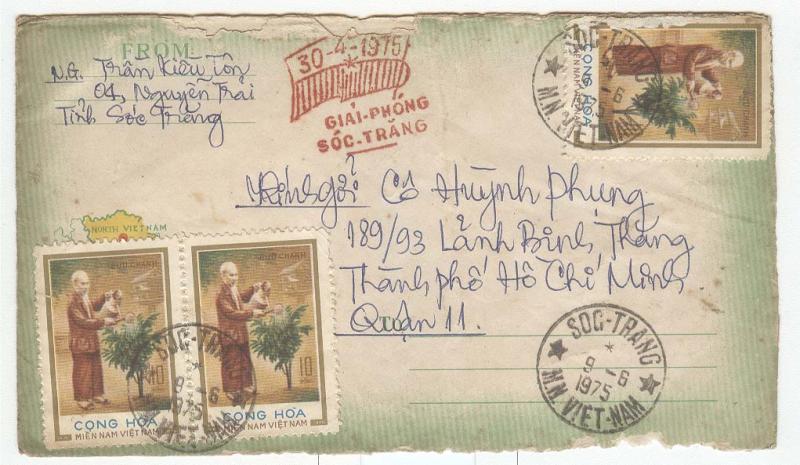 FROM
N.G. Trần Kiều Tôn
04, Nguyễn Trãi
Tỉnh Sóc Trăng
30-4-1975
GIẢI-PHÓNG
SÓC-TRĂNG
SOC-TRANG
6
M.N. VIET-NAM
CỘNG HÒA
MIỀN NAM VIỆT NAM
Kính gởi Cô Huỳnh Phụng
189/93 Lãnh Binh Thăng
Thành phố Hồ Chí Minh.
Quận 11.
TO
NORTH VIETNAM
BƯU CHÁNH
10
CỘNG HÒA
MIỀN NAM VIỆT NAM
BƯU CHÁNH
10
CỘNG HÒA
MIỀN NAM VIỆT NAM
SOC-TRANG
9-6
1975
M.N. VIET-NAM
SOC-TRANG
9-6
1975
M.N. VIET-NAM